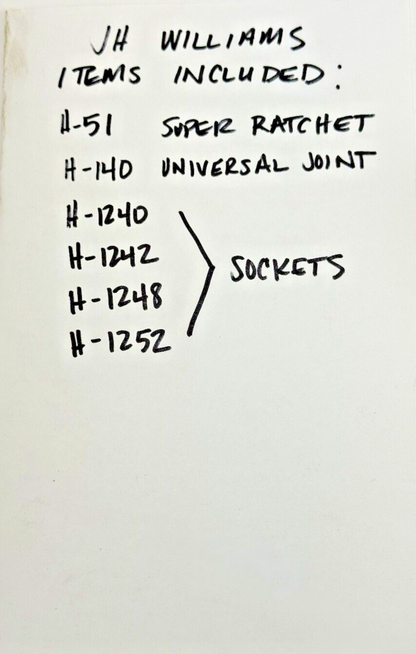 JH WILLIAMS
ITEMS INCLUDED:
H-51 SUPER RATCHET
H-140 UNIVERSAL JOINT
H-1240
H-1242
SOCKETS
H-1248
H-1252